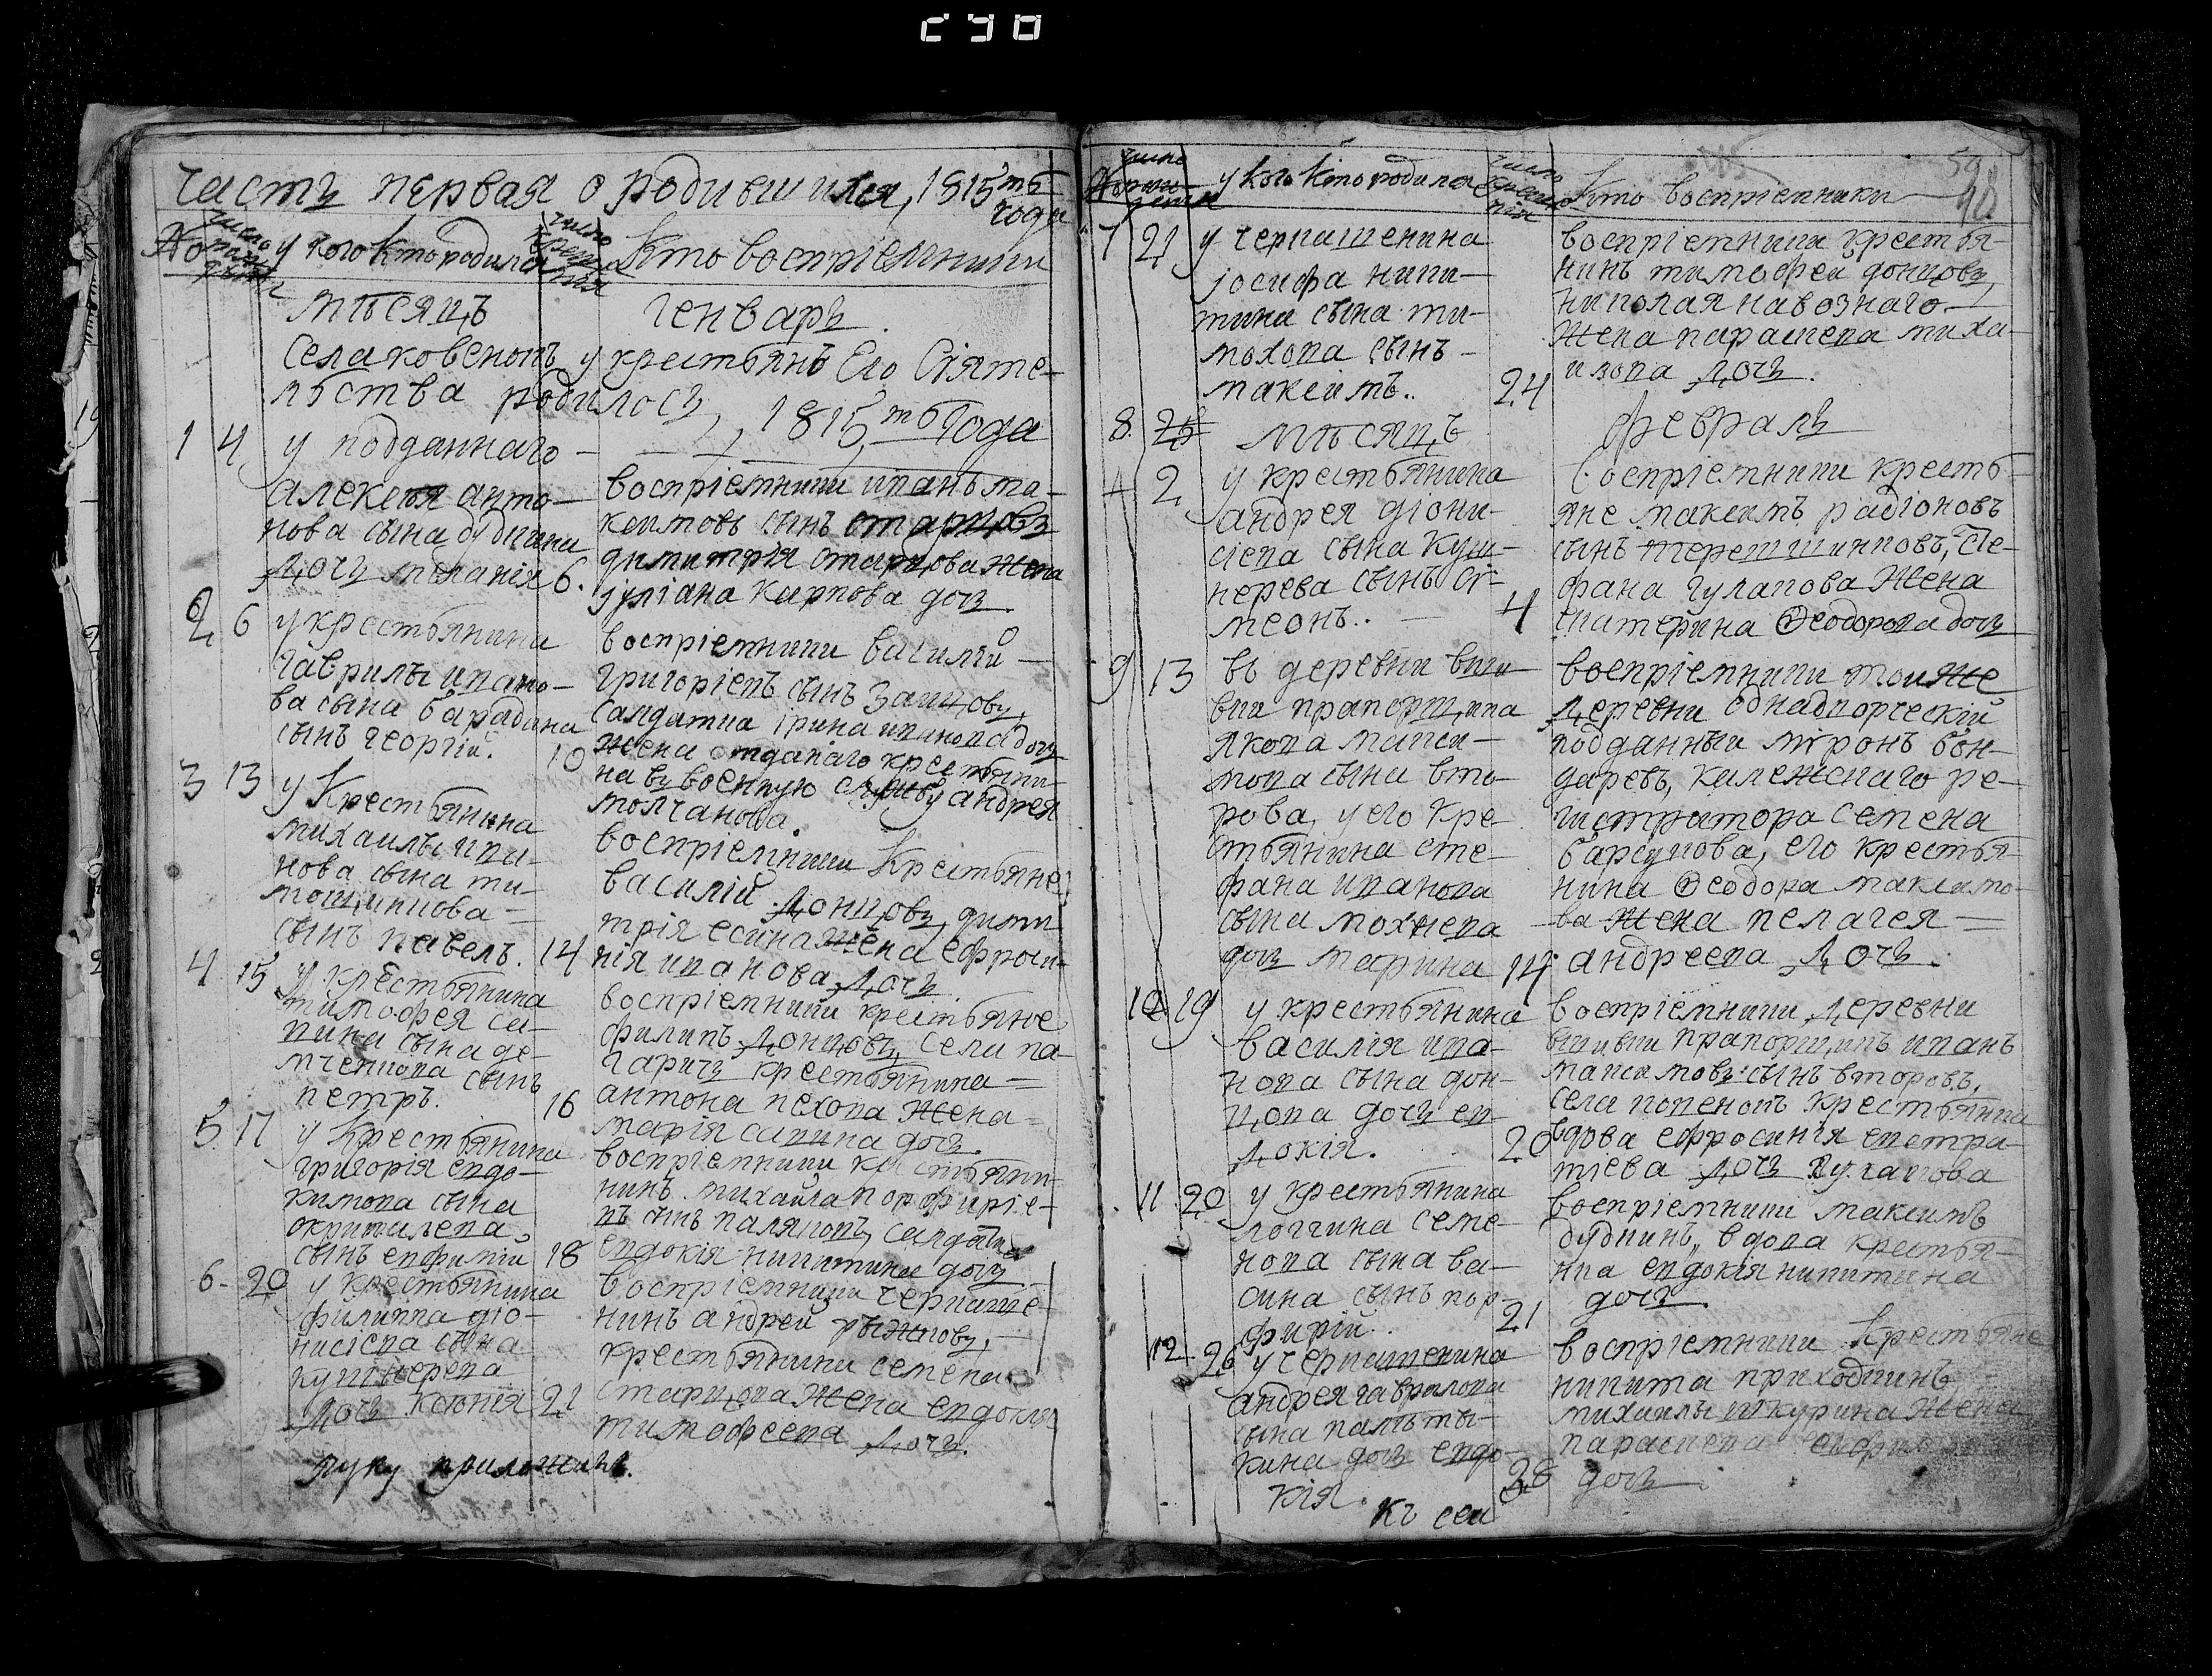 298
часть первая о родившихся, 1815го
года
No
число
рож
дения
у кого кто родился
число
крещ
ния
Кто восприемники
мѣсяцъ генварь
Селаковеномъ у крестьянъ Его Сіяте-
льства родилось, 1815го Года
1 4 у подданнаго
алексѣя анто-
нова сына будкина
дочь меланія 6.
воспріемники иванъ ма-
ксимовъ сынъ старцовъ
димитрія старцова жена
іуліана карпова дочь
2 6 у крестьянина
гаврилы ивано-
ва сына барабана
сынъ георгій. 10
воспріемники василій
григоріевъ сынъ Заицовъ,
салдатка ірина иванова дочь
жена отданаго крестьяни-
на въ военную службу андрея
молчанова.
3 13 у крестьянина
михаилы ива-
нова сына ти-
мощинкова
сынъ павелъ. 14
воспріемники Крестьяне
василій Донцовъ, дими
трія есина жена ефроси-
нія иванова Дочь
4 15 у крестьянина
тимофея са-
вина сына де-
мченкова сынъ
петръ. 16
воспріемники крестьяне
филипъ Донцовъ, села па-
гаричь крестьянина
антона пехова жена
марія савина дочь
5 17 у Крестьянина
григорія евдо-
кимова сына
сынъ евфимій 18
воспріемники крестьяни-
нинъ михайла порфиріе-
въ сынъ палямовъ, салдатка
евдокія никитина дочь
6 20 у крестьянина
филиппа діо-
нисіева сына
кушнерева
Дочь ксенія 21
воспріемники черкаше-
нинъ андрей рыжковъ,
крестьянина семена
старцова жена евдокія
тимофеева дочь.
руку приложилъ.
число
рож
дения
у кого кто родился
число
креще
нія
Кто воспріемники
59
98
7 21 у черкашенина
іосифа ники-
тина сына ти-
мохова сынъ
максимъ.. 24
воспріемники крестья-
нинъ тимофей донцовъ,
николая навознаго
жена парасκева миха-
илова Дочь.
8. мѣсяцъ февраль
2 у крестьянина
андрея діони-
сіева сына куш-
нерева сынъ сі-
меонъ.. 4
Воспріемники кресть-
яне максимъ радіоновъ
сынъ терешшинковъ, сте-
фана гулакова жена
екатерина Ѳеодорова дочь
9 13 въ деревни виш
вки прапорщика
якова макси-
мова сына вто-
рова, у его кре-
стьянина сте-
фана иванова
сына мохнева
дочь марина 14
воспріемники тоиже
Деревни однадворческій
подданный миронъ бон-
даревъ, калежскаго ре-
гистратора семена
барсукова, его крестья
нина Ѳеодора максимо-
ва жена пелагея
андреева Дочь.
10 19 у крестьянина
василія ива-
нова сына дон-
цова дочь ев-
докія. 20
воспріемники Деревни
вишвки прапорщикъ иванъ
максимовъ сынъ второвъ,
села поменомъ крестьянка
вдова ефросинія евстра-
тіева Дочь
11 20 у крестьянина
логгина семе-
нова сына ва-
сина сынъ пор-
фирій.. 21
воспріемники максимъ
будкинъ, вдова крестья-
нка евдокія никитина
дочь.
12 26 у черкашенина
андрея гаврилова
сына
кина дочь евдо-
кія. 28
воспріемники Крестьяне
никита приходкинъ,
михаилы шкурина жена
параскева
дочь
Къ сей